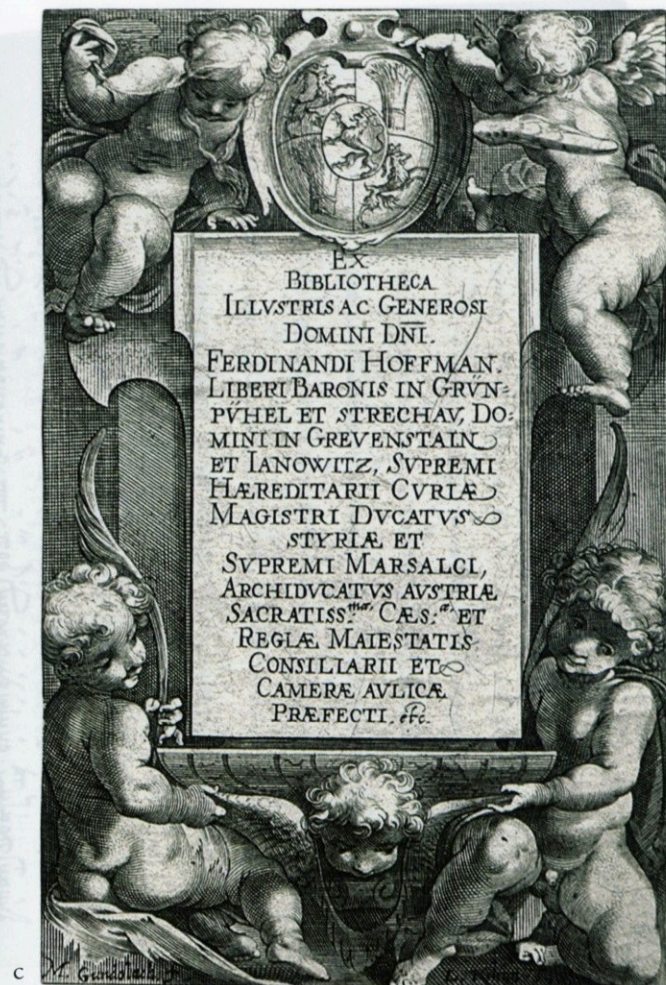 EX
BIBLIOTHECA
ILLVSTRIS AC GENEROSI
DOMINI DN̄I.
FERDINANDI HOFFMAN.
LIBERI BARONIS IN GRÜN=
PŰHEL ET STRECHAV, DO:
MINI IN GREVENSTAIN
ET IANOWITZ, SVPREMI
HÆREDITARII CVRIÆ
MAGISTRI DVCATVS
STYRIÆ ET
SVPREMI MARSALCI,
ARCHIDVCATVS AVSTRIÆ
SACRATISS:mæ, CÆS:æ, ET
REGIÆ MAIESTATIS
CONSILIARII ET
CAMERÆ AVLICÆ
PRÆFECTI. etc.
C
M.